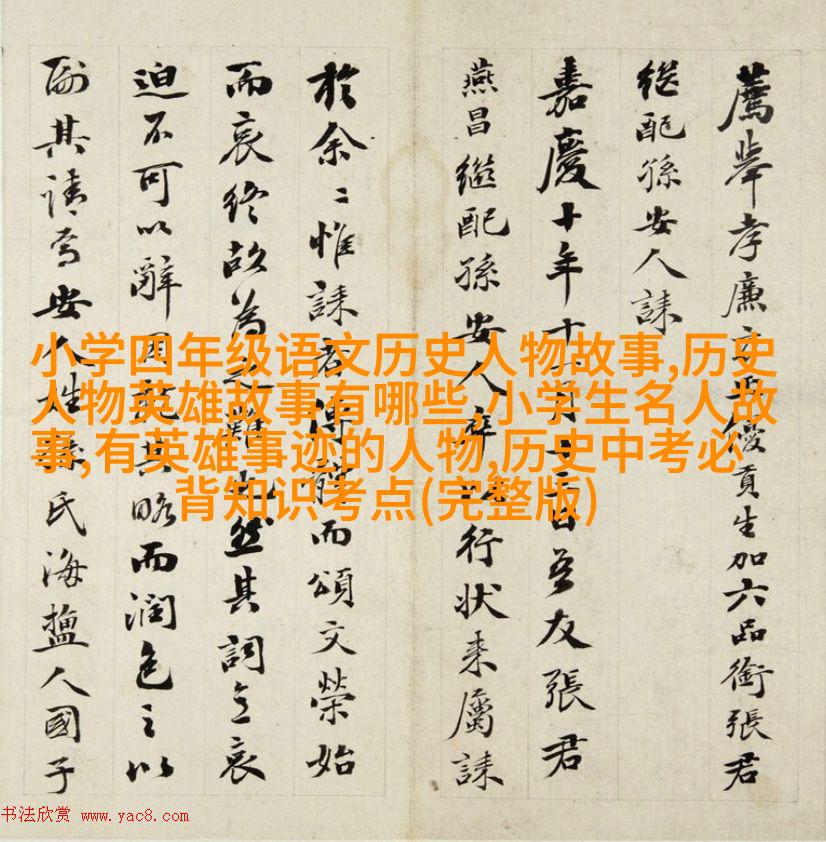 薦舉孝廉方正優貢生加六品銜張君
繼配孫安人誄
嘉慶十年十月日吾友張君
燕昌繼配孫安人卒行狀來屬誄
於余〻惟誄者傳體而頌文榮始
而哀終故為之難也然其詞立哀
迫不可以辭因就其略而潤色之以
副其請焉安人姓孫氏海鹽人國子
小学四年级语文历史人物故事,历史
人物英雄故事有哪些,小学生名人故
事,有英雄事迹的人物,历史中考必
背知识考点(完整版)
书法欣赏 www.yac8.com